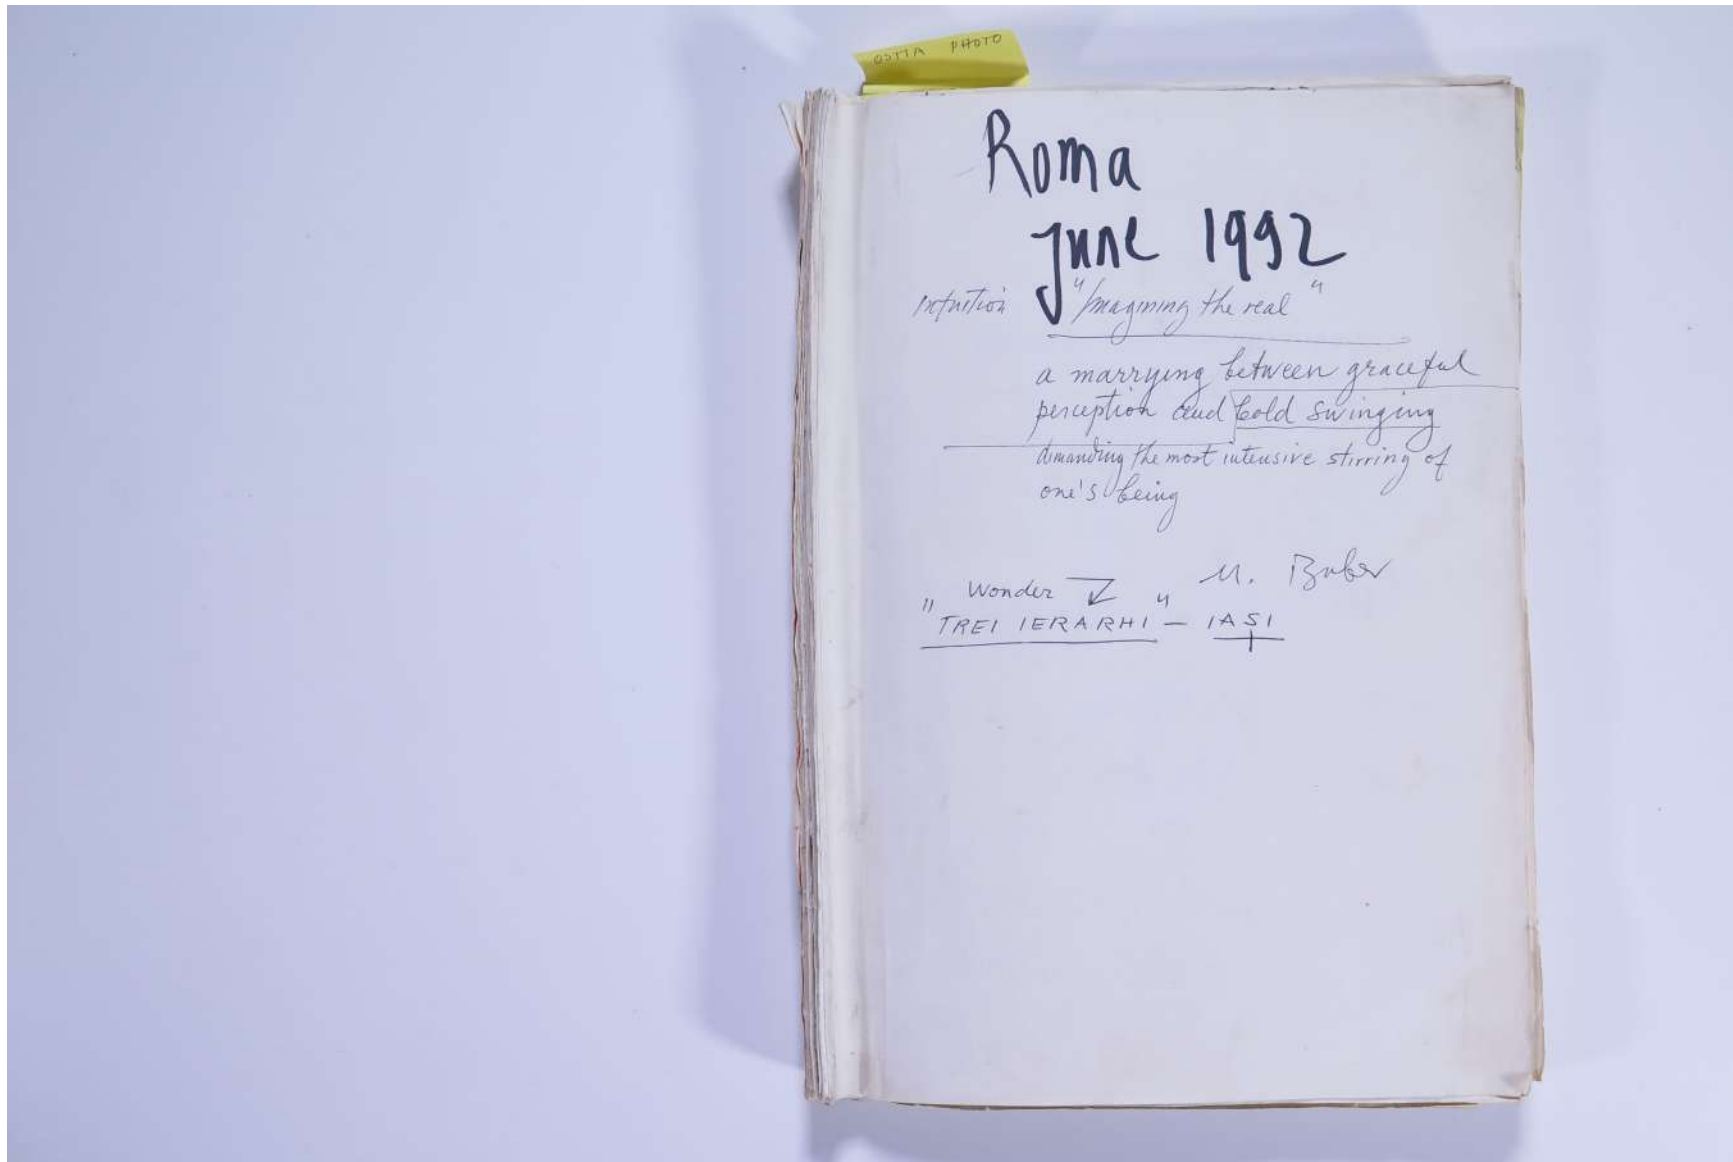 OSTIA PHOTO
Roma
June 1992
Intuition "Imagining the real"
a marrying between graceful
perception and bold swinging
demanding the most intensive stirring of
one's being
M. Buber
Wonder
"TREI IERARHI" — IASI